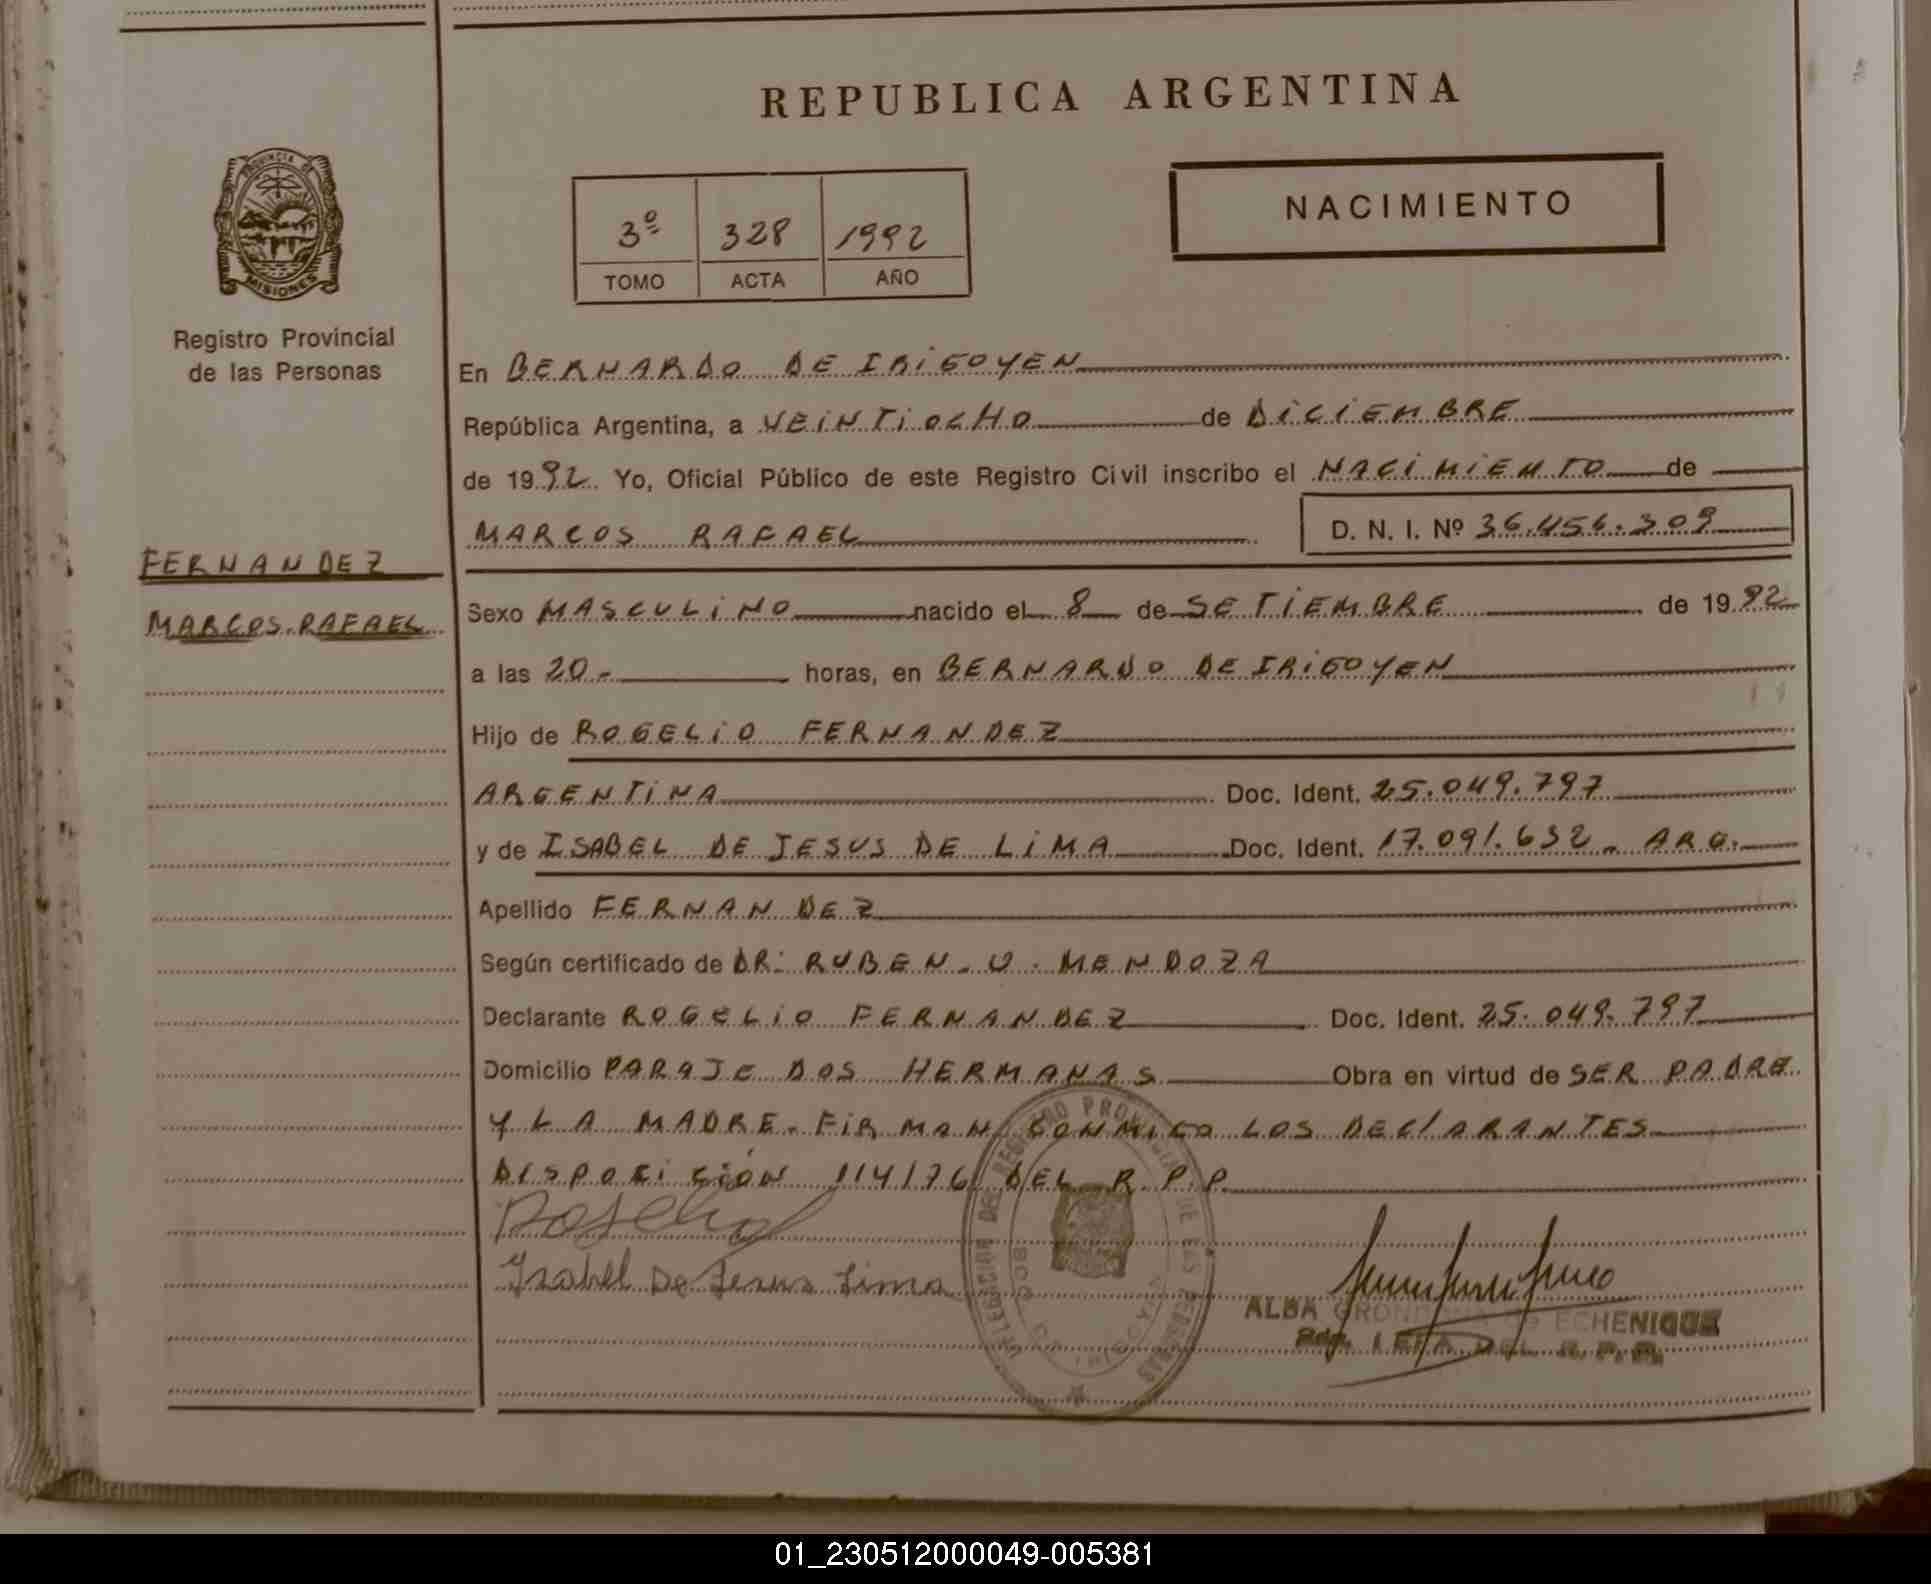 REPUBLICA ARGENTINA
PROVINCIA DE
MISIONES
Registro Provincial
de las Personas
3º 328 1992
TOMO ACTA AÑO
NACIMIENTO
En BERNARDO DE IRIGOYEN
República Argentina, a VEINTIOCHO de DICIEMBRE
de 1992 Yo, Oficial Público de este Registro Civil inscribo el NACIMIENTO de
MARCOS RAFAEL D. N. I. Nº 36.456.309
FERNANDEZ
MARCOS RAFAEL
Sexo MASCULINO nacido el 8 de SETIEMBRE de 1992
a las 20.- horas, en BERNARDO DE IRIGOYEN
Hijo de ROGELIO FERNANDEZ
ARGENTINA Doc. Ident. 25.049.797
y de ISABEL DE JESUS DE LIMA Doc. Ident. 17.091.632 - ARG.
Apellido FERNANDEZ
Según certificado de DR: RUBEN. O. MENDOZA
Declarante ROGELIO FERNANDEZ Doc. Ident. 25.049.797
Domicilio PARAJE DOS HERMANAS Obra en virtud de SER PADRE
Y LA MADRE. FIRMAN CONMIGO LOS DECLARANTES
DISPOSICIÓN 114/76 DEL R.P.P.
Rogelio
Isabel De Jesus Lima
DELEGACION DEL REGISTRO PROVINCIAL DE LAS PERSONAS
BDO. DE IRIGOYEN
ALBA GRONDONA de ECHENIQUE
JEFA DEL R.P.P.
01_230512000049-005381